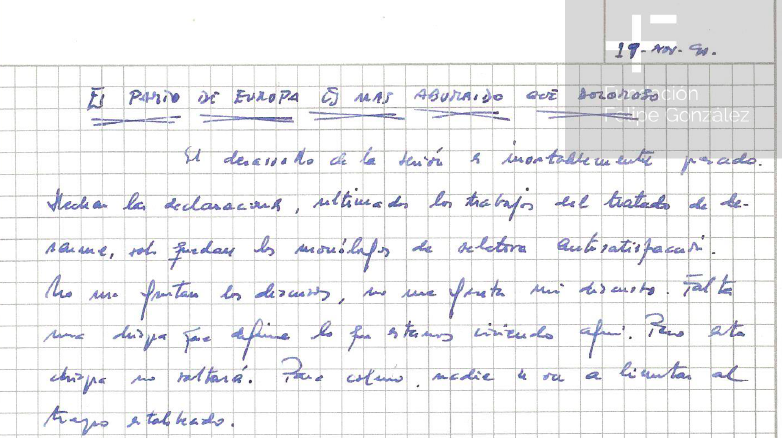 19-Nov-90.
Fundación
Felipe González
El PARTO DE EUROPA ES MAS ABURRIDO QUE DOLOROSO
El desarrollo de la sesión es insoportablemente pesado.
Hechas las declaraciones, ultimados los trabajos del tratado de de-
sarme, solo quedan los monólogos de relativa autosatisfacción.
No me gustan los discursos, no me gusta mi discurso. Falta
una chispa que defina lo que estamos viviendo aquí. Pero esta
chispa no saltará. Para colmo, nadie se va a limitar al
tiempo establecido.